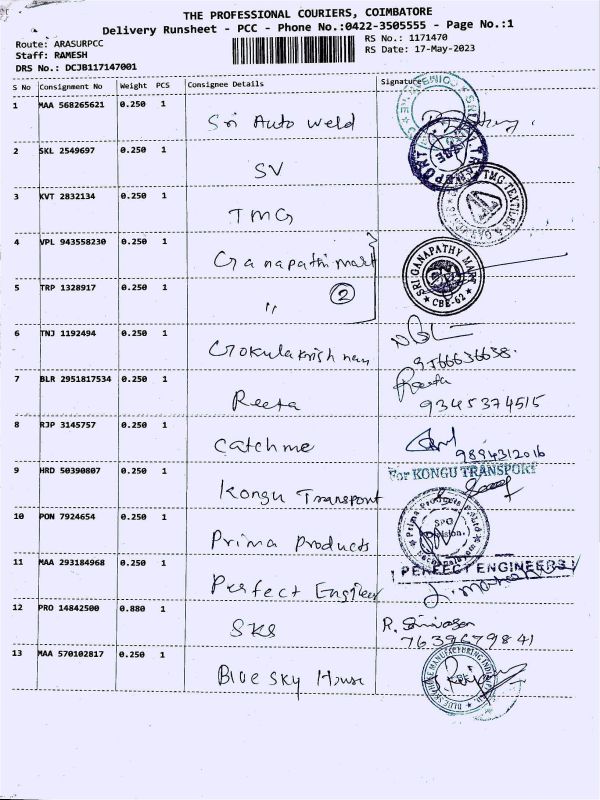 THE PROFESSIONAL COURIERS, COIMBATORE
Delivery Runsheet - PCC - Phone No.:0422-3505555 - Page No.:1
Route: ARASURPCC
RS No.: 1171470
Staff: RAMESH
RS Date: 17-May-2023
DRS No.: DCJB117147001
S No Consignment No Weight PCS Consignee Details Signature
1 MAA 568265621 0.250 1 Sri Auto weld
2 SKL 2549697 0.250 1 SV
TRANSPORT
3 KVT 2832134 0.250 1 TMG
TMG TEXTILES
4 VPL 943558230 0.250 1 Ganapathi mart
SRI GANAPATHY MART
★ CBE-62 ★
5 TRP 1328917 0.250 1 "
2
6 TNJ 1192494 0.250 1 Gokulakrishnan
9566636638.
7 BLR 2951817534 0.250 1 Reeta
Reeta
9345374515
8 RJP 3145757 0.250 1 Catchme
9894312016
9 HRD 50390807 0.250 1 Kongu Transport
For KONGU TRANSPORT
10 PON 7924654 0.250 1 Prima Products
Prima Products
SPG
Division.
11 MAA 293184968 0.250 1 Perfect Engineer
PERFECT ENGINEERS
12 PRO 14842500 0.880 1 SKS
R. Srinivasan
7639679841
13 MAA 570102817 0.250 1 Blue Sky House